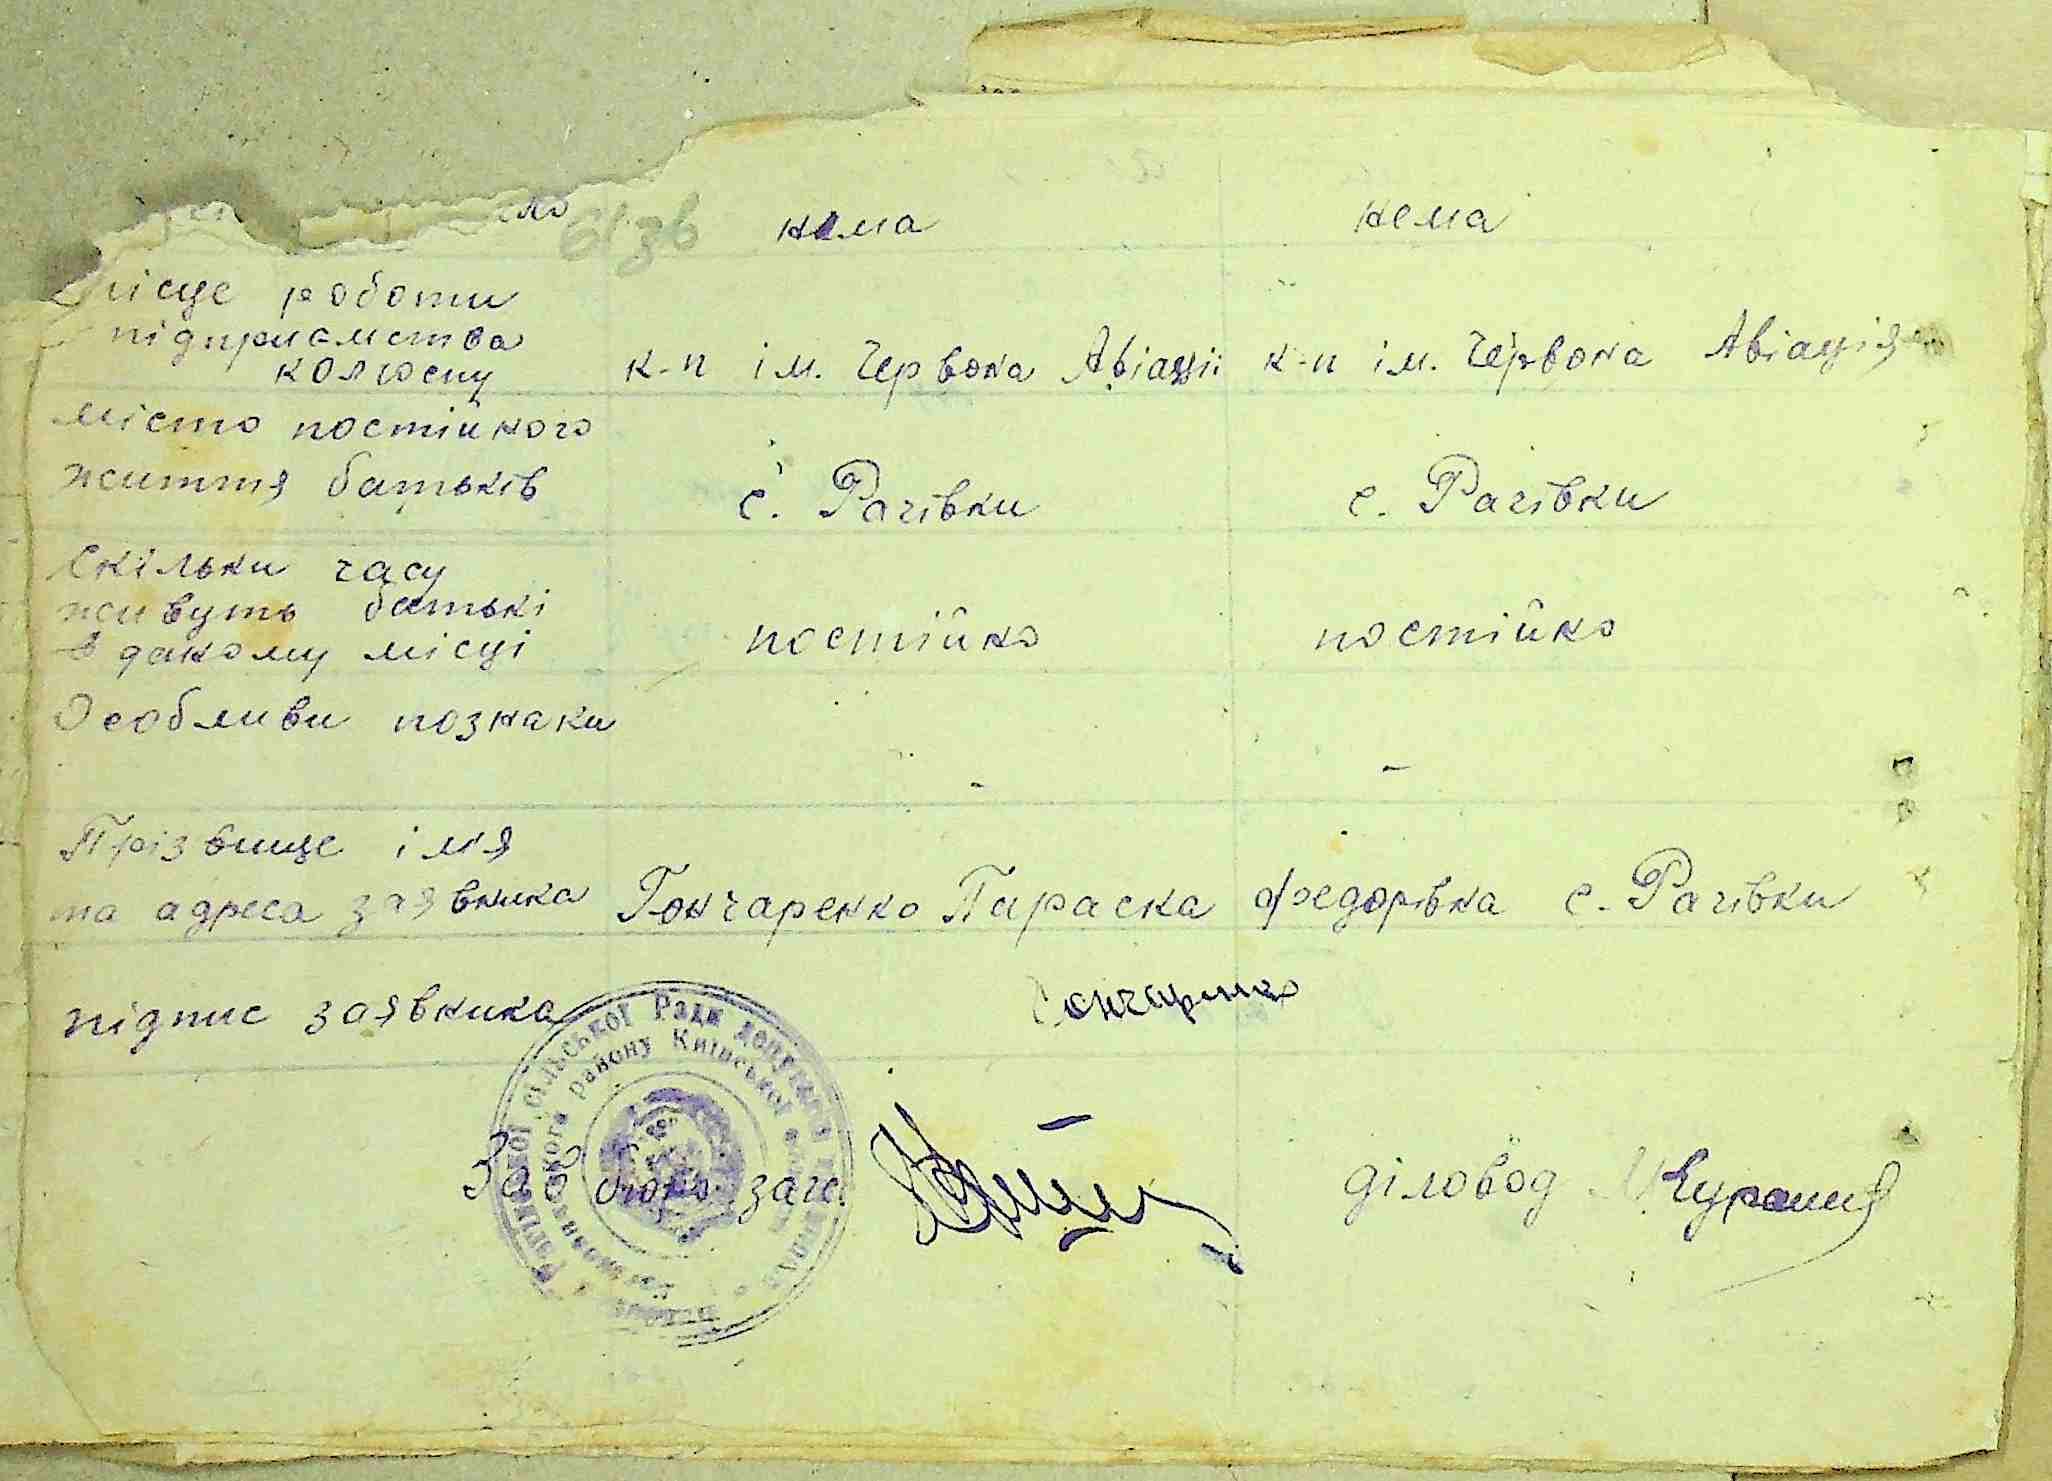 нема нема
місце роботи
підприємства
колгоспу к-п ім. Червона Авіації к-п ім. Червона Авіація
місто постійного
життя батьків с. Рагівки с. Рагівки
Скільки часу
живуть батькі
в даному місці постійно постійно
Особливи познаки - -
Прізвище імя
та адреса заявника Гончаренко Параска Федорівна с. Рагівки
підпис заявника Гончаренко
сільської Ради депутатів
району Київської області
Зав бюро загс діловод